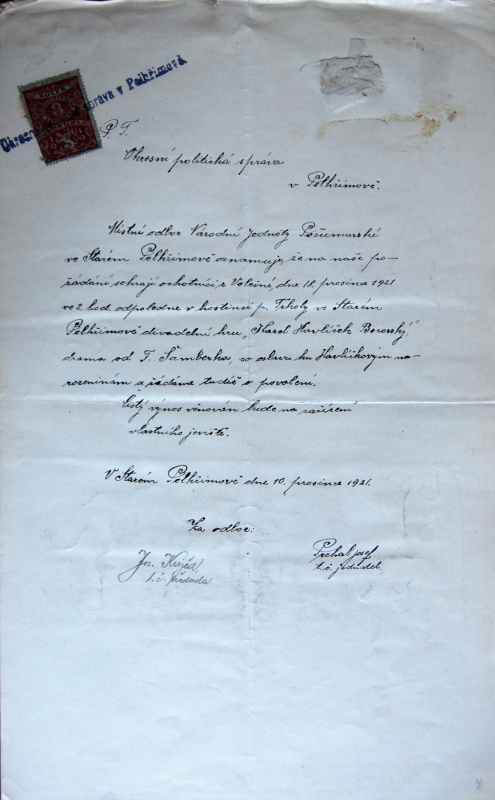 práva v Pelhřimově
P. T.
Okresní politická správa
v Pelhřimově.
Místní odbor Národní Jednoty Pošumavské
ve Starém Pelhřimově oznamuje, že na naše po-
žádání sehrají ochotníci z Volešné, dne 18. prosince 1921
ve 2. hod. odpoledne v hostinci p. Trholy ve Starém
Pelhřimově divadelní hru „Karel Havlíček Borovský,"
drama od F. Šamberka, co oslavu ku Havlíčkovým na-
rozeninám a žádáme tudíž o povolení.
Čistý výnos věnován bude na zařízení
vlastního jeviště.
V Starém Pelhřimově dne 10. prosince 1921.
Za odbor:
Jos.
t. č. předseda.
Josef
t. č. jednatel.